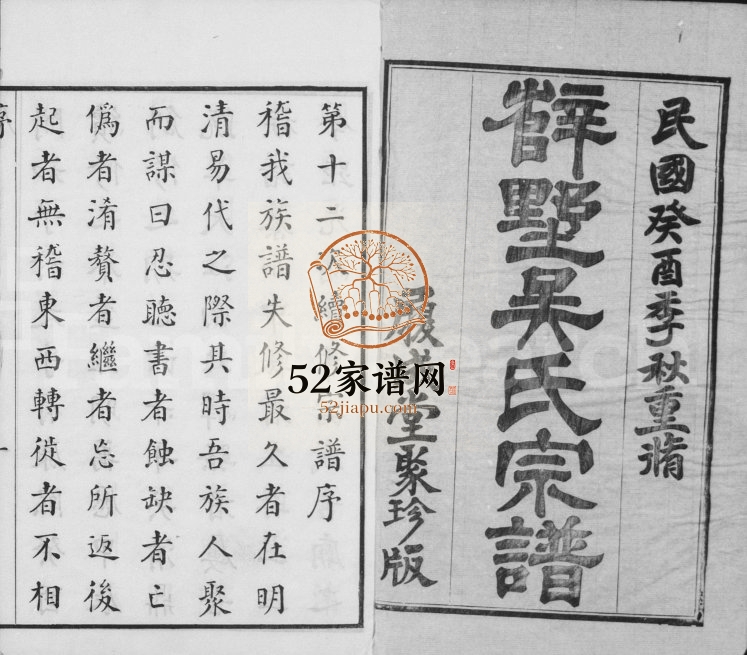 民國癸酉季秋重脩
薛墅吳氏宗譜
堂聚珍版
第十二 續修宗譜序
稽我族譜失修最久者在明
清易代之際其時吾族人聚
而謀曰忍聽書者蝕缺者亡
僞者淆贅者繼者忘所返後
起者無稽東西轉徙者不相
52家谱网
52jiapu.com